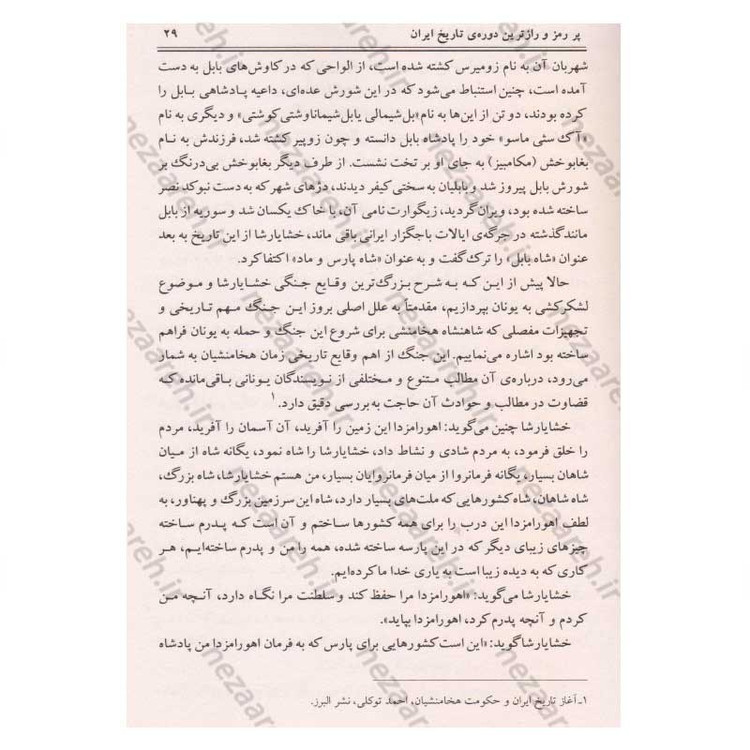 پر رمز و رازترین دوره‌ی تاریخ ایران ۲۹
شهربان آن به نام زومیرس کشته شده است، از الواحی که در کاوش‌های بابل به دست
آمده است، چنین استنباط می‌شود که در این شورش عده‌ای، داعیه پادشاهی بابل را
کرده بودند، دو تن از این‌ها به نام «بل‌شیمالی یابل‌شیماناوشتی‌کوشتی» و دیگری به نام
«آک سئی ماسو» خود را پادشاه بابل دانسته و چون زوپیر کشته شد، فرزندش به نام
بغابوخش (مکامبیز) به جای او بر تخت نشست. از طرف دیگر بغابوخش بی‌درنگ بر
شورش بابل پیروز شد و بابلیان به سختی کیفر دیدند، دژهای شهر که به دست نبوکد نصر
ساخته شده بود، ویران گردید، زیگوارت نامی آن، با خاک یکسان شد و سوریه از بابل
مانند گذشته در جرگه‌ی ایالات باجگزار ایرانی باقی ماند، خشایارشا از این تاریخ به بعد
عنوان «شاه بابل» را ترک گفت و به عنوان «شاه پارس و ماد» اکتفا کرد.
حالا پیش از این که به شرح بزرگ‌ترین وقایع جنگی خشایارشا و موضوع
لشکرکشی به یونان بپردازیم، مقدمتاً به علل اصلی بروز این جنگ مهم تاریخی و
تجهیزات مفصلی که شاهنشاه هخامنشی برای شروع این جنگ و حمله به یونان فراهم
ساخته بود اشاره می‌نماییم. این جنگ از اهم وقایع تاریخی زمان هخامنشیان به شمار
می‌رود، درباره‌ی آن مطالب متنوع و مختلفی از نویسندگان یونانی باقی‌مانده که
قضاوت در مطالب و حوادث آن حاجت به بررسی دقیق دارد.۱
خشایارشا چنین می‌گوید: اهورامزدا این زمین را آفرید، آن آسمان را آفرید، مردم
را خلق فرمود، به مردم شادی و نشاط داد، خشایارشا را شاه نمود، یگانه شاه از میان
شاهان بسیار، یگانه فرمانروا از میان فرمانروایان بسیار، من هستم خشایارشا، شاه بزرگ،
شاه شاهان، شاه کشورهایی که ملت‌های بسیار دارد، شاه این سرزمین بزرگ و پهناور، به
لطف اهورامزدا این درب را برای همه کشورها ساختم و آن است که پدرم ساخته
چیزهای زیبای دیگر که در این پارسه ساخته شده، همه را من و پدرم ساخته‌ایم، هر
کاری که به دیده زیبا است به یاری خدا ما کرده‌ایم.
خشایارشا می‌گوید: «اهورامزدا مرا حفظ کند و سلطنت مرا نگاه دارد، آنچه من
کردم و آنچه پدرم کرد، اهورامزدا بپاید».
خشایارشا گوید: «این است کشورهایی برای پارس که به فرمان اهورامزدا من پادشاه
۱ـ آغاز تاریخ ایران و حکومت هخامنشیان، احمد توکلی، نشر البرز.
nezaareh.ir